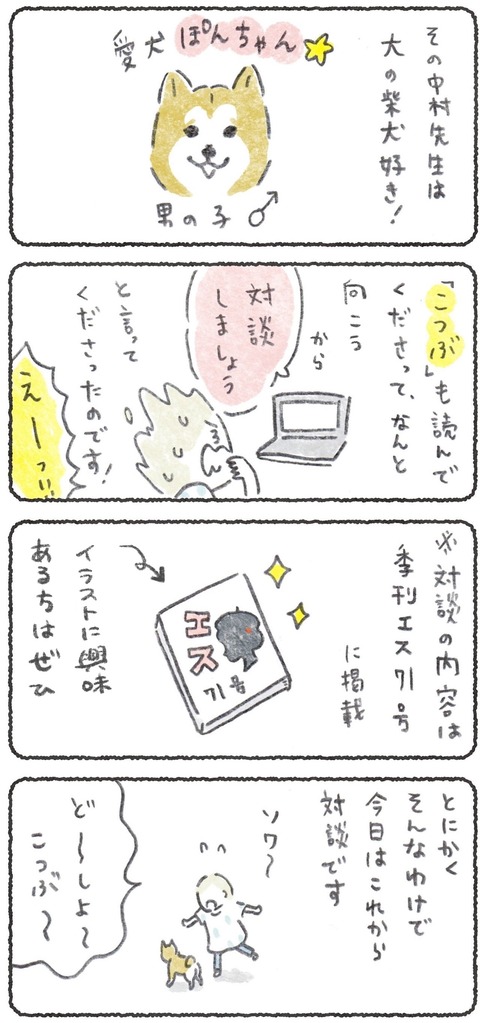 その中村先生は
大の柴犬好き!
愛犬ぽんちゃん
男の子♂
「こつぶ」も読んで
くださって、なんと
向こう
から
対談
しましょう
と言って
くださったのです!
えーっ!!!
※対談の内容は
季刊エス71号
に掲載
エス
71号
イラストに興味
ある方はぜひ
とにかく
そんなわけで
今日はこれから
対談です
ソワ〜
ど〜しよ〜
こつぶ〜